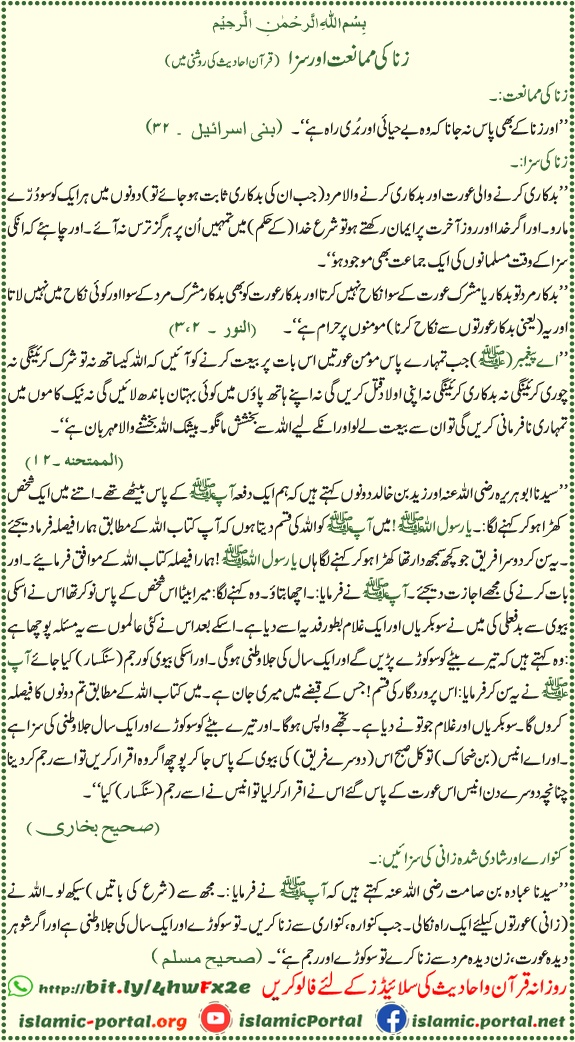 بِسْمِ اللهِ الرَّحْمٰنِ الرَّحِيْمِ
زنا کی ممانعت اور سزا (قرآن احادیث کی روشنی میں)
زنا کی ممانعت:۔
’’اور زنا کے بھی پاس نہ جانا کہ وہ بے حیائی اور بُری راہ ہے‘‘۔ (بنی اسرائیل ۔ ۳۲)
زنا کی سزا:۔
’’بدکاری کرنے والی عورت اور بدکاری کرنے والا مرد (جب ان کی بدکاری ثابت ہو جائے تو) دونوں میں ہر ایک کو سو دُرّے
مارو۔ اور اگر خدا اور روز آخرت پر ایمان رکھتے ہو تو شرع خدا (کے حکم) میں تمہیں اُن پر ہرگز ترس نہ آئے۔ اور چاہئے کہ انکی
سزا کے وقت مسلمانوں کی ایک جماعت بھی موجود ہو‘‘۔
’’بدکار مرد تو بدکار یا مشرک عورت کے سوا نکاح نہیں کرتا اور بدکار عورت کو بھی بدکار مشرک مرد کے سوا اور کوئی نکاح میں نہیں لاتا
اور یہ (یعنی بدکار عورتوں سے نکاح کرنا) مومنوں پر حرام ہے‘‘۔ (النور ۔ ۳،۲)
’’اے پیغمبر (ﷺ) جب تمہارے پاس مؤمن عورتیں اس بات پر بیعت کرنے کو آئیں کہ اللہ کیساتھ نہ تو شرک کرینگی نہ
چوری کرینگی نہ بدکاری کرینگی نہ اپنی اولاد قتل کریں گی نہ اپنے ہاتھ پاؤں میں کوئی بہتان باندھ لائیں گی نہ نیک کاموں میں
تمہاری نافرمانی کریں گی تو ان سے بیعت لے لو اور انکے لیے اللہ سے بخشش مانگو۔ بیشک اللہ بخشنے والا مہربان ہے‘‘۔
(الممتحنہ ۔۱۲)
’’سیدنا ابو ہریرہ رضی اللہ عنہ اور زید بن خالد دونوں کہتے ہیں کہ ہم ایک دفعہ آپ ﷺ کے پاس بیٹھے تھے۔ اتنے میں ایک شخص
کھڑا ہو کر کہنے لگا:۔ یا رسول اللہ ﷺ! میں آپ ﷺ کو اللہ کی قسم دیتا ہوں کہ آپ کتاب اللہ کے مطابق ہمارا فیصلہ فرما دیجئے
۔ یہ سن کر دوسرا فریق جو کچھ سمجھ دار تھا کھڑا ہو کر کہنے لگا ہاں یا رسول اللہ ﷺ! ہمارا فیصلہ کتاب اللہ کے موافق فرمائیے۔ اور
بات کرنے کی مجھے اجازت دیجئے۔ آپ ﷺ نے فرمایا:۔ اچھا بتاؤ۔ وہ کہنے لگا: میرا بیٹا اس شخص کے پاس نوکر تھا اس نے اسکی
بیوی سے بدفعلی کی میں نے سو بکریاں اور ایک غلام بطور فدیہ اسے دیا ہے۔ اسکے بعد اس نے کئی عالموں سے یہ مسئلہ پوچھا ہے
:وہ کہتے ہیں کہ تیرے بیٹے کو سو کوڑے پڑیں گے اور ایک سال کی جلاوطنی ہو گی۔ اور اسکی بیوی کو رجم (سنگسار) کیا جائے آپ
ﷺ نے یہ سن کر فرمایا: اس پروردگار کی قسم! جس کے قبضے میں میری جان ہے۔ میں کتاب اللہ کے مطابق تم دونوں کا فیصلہ
کروں گا۔ سو بکریاں اور غلام جو تو نے دیا ہے۔ تجھے واپس ہو گا۔ اور تیرے بیٹے کو سو کوڑے اور ایک سال جلاوطنی کی سزا ہے
۔ اور اے انیس (بن ضحاک) تو کل صبح اس (دوسرے فریق) کی بیوی کے پاس جا کر پوچھ اگر وہ اقرار کریں تو اسے رجم کر دینا
چنانچہ دوسرے دن انیس اس عورت کے پاس گئے اس نے اقرار کر لیا تو انیس نے اسے رجم (سنگسار) کیا‘‘۔
(صحیح بخاری)
کنوارے اور شادی شدہ زانی کی سزائیں:۔
’’سیدنا عبادہ بن صامت رضی اللہ عنہ کہتے ہیں کہ آپ ﷺ نے فرمایا:۔ مجھ سے (شرع کی باتیں) سیکھ لو۔ اللہ نے
(زانی) عورتوں کیلئے ایک راہ نکالی۔ جب کنوارہ، کنواری سے زنا کریں۔ تو سو کوڑے اور ایک سال کی جلاوطنی ہے اور اگر شوہر
دیدہ عورت، زن دیدہ مرد سے زنا کرے تو سو کوڑے اور رجم ہے‘‘۔ (صحیح مسلم)
روزانہ قرآن و احادیث کی سلائیڈز کے لئے فالو کریں http://bit.ly/4hwFx2e
islamic-portal.org islamicPortal islamic.portal.net